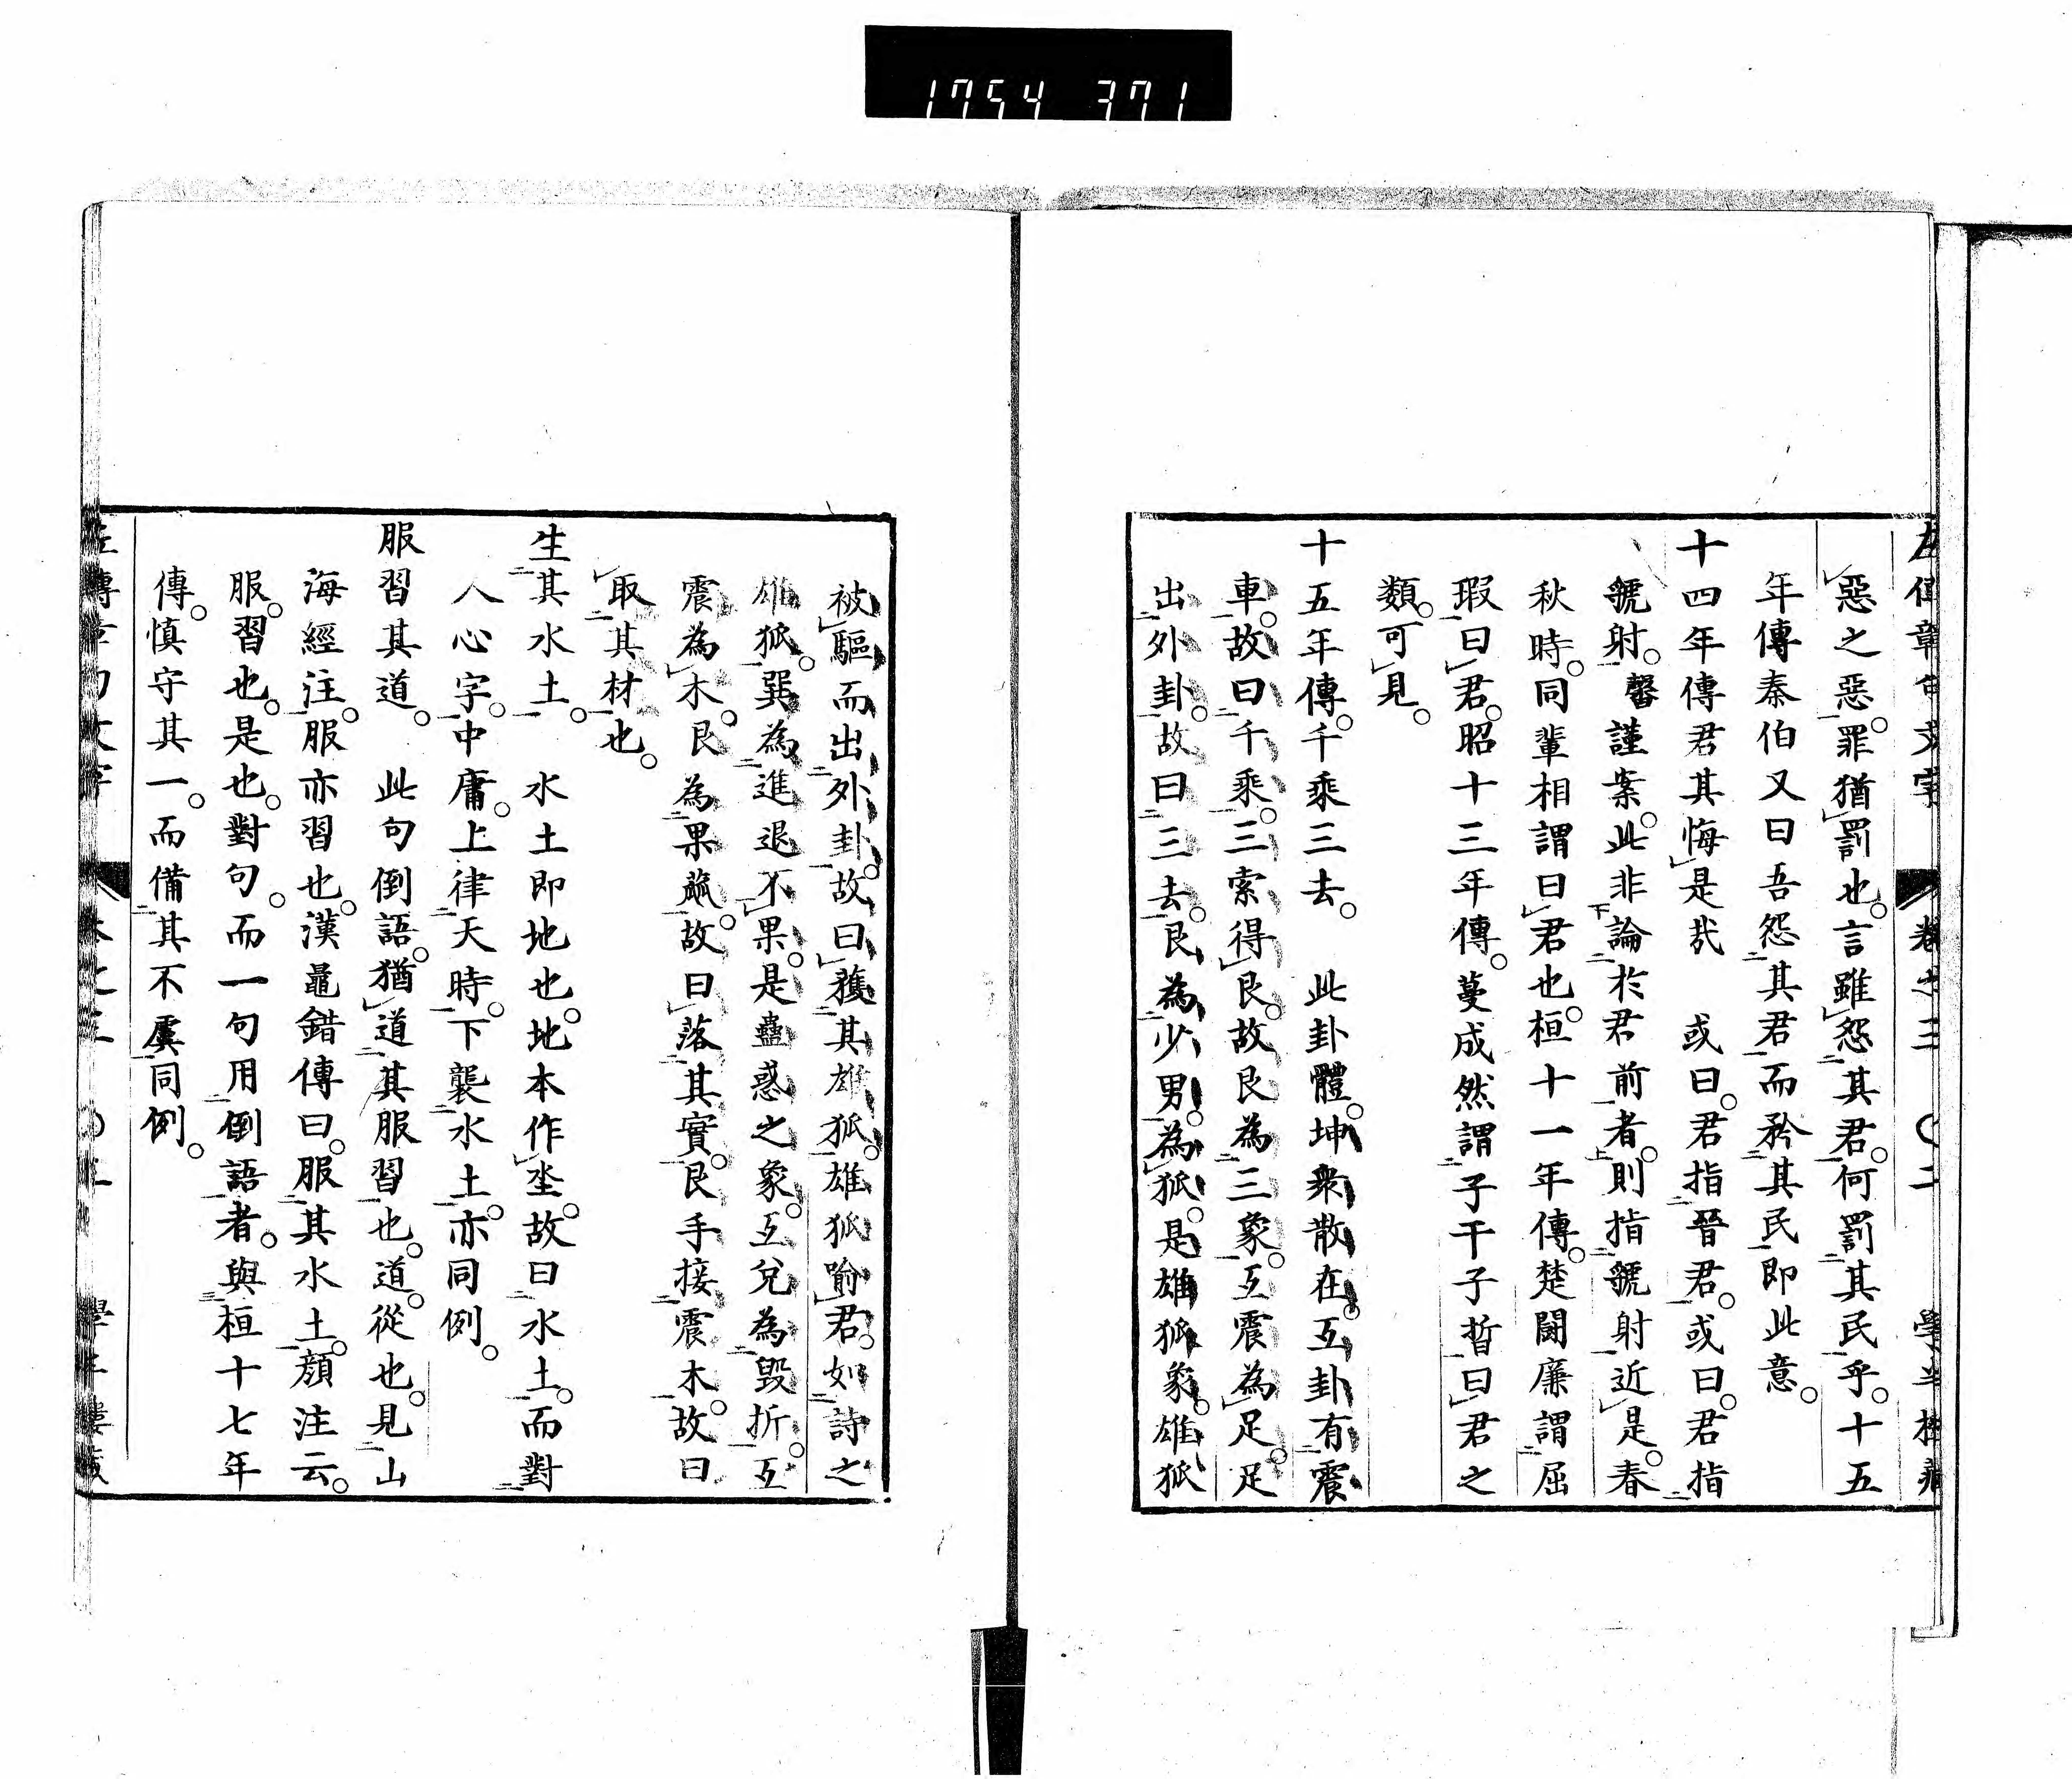 1754 371
左傳章句文字 卷之三 〇二 學半樓藏
惡之惡。罪猶罰也。言雖怨其君。何罰其民乎。十五
年傳秦伯又曰吾怨其君而矜其民即此意。
十四年傳君其悔是哉 或曰。君指晉君。或曰。君指
虢射。馨謹案。此非論於君前者。則指虢射近是。春
秋時。同輩相謂曰君也。桓十一年傳。楚鬭廉謂屈
瑕曰君。昭十三年傳。蔓成然謂子干子晳曰君之
類。可見。
十五年傳。千乘三去。 此卦體。坤衆散在。互卦有震
車。故曰千乘。三索得艮。故艮為三象。互震為足。足
出外卦。故曰三去。艮為少男。為狐。是雄狐象。雄狐
被驅而出外卦。故曰獲其雄狐。雄狐喻君。如詩之
雄狐。巽為進退不果。是蠱惑之象。互兌為毀折。互
震為木。艮為果蓏。故曰落其實。艮手接震木。故曰
取其材也。
生其水土。 水土即地也。地本作坔。故曰水土。而對
人心字。中庸。上律天時。下襲水土。亦同例。
服習其道。 此句倒語。猶道其服習也。道。從也。見山
海經注。服亦習也。漢鼂錯傳曰。服其水土。顏注云。
服。習也。是也。對句。而一句用倒語者。與桓十七年
傳。慎守其一。而備其不虞同例。
左傳章句文字 卷之三 〇三 學半樓藏